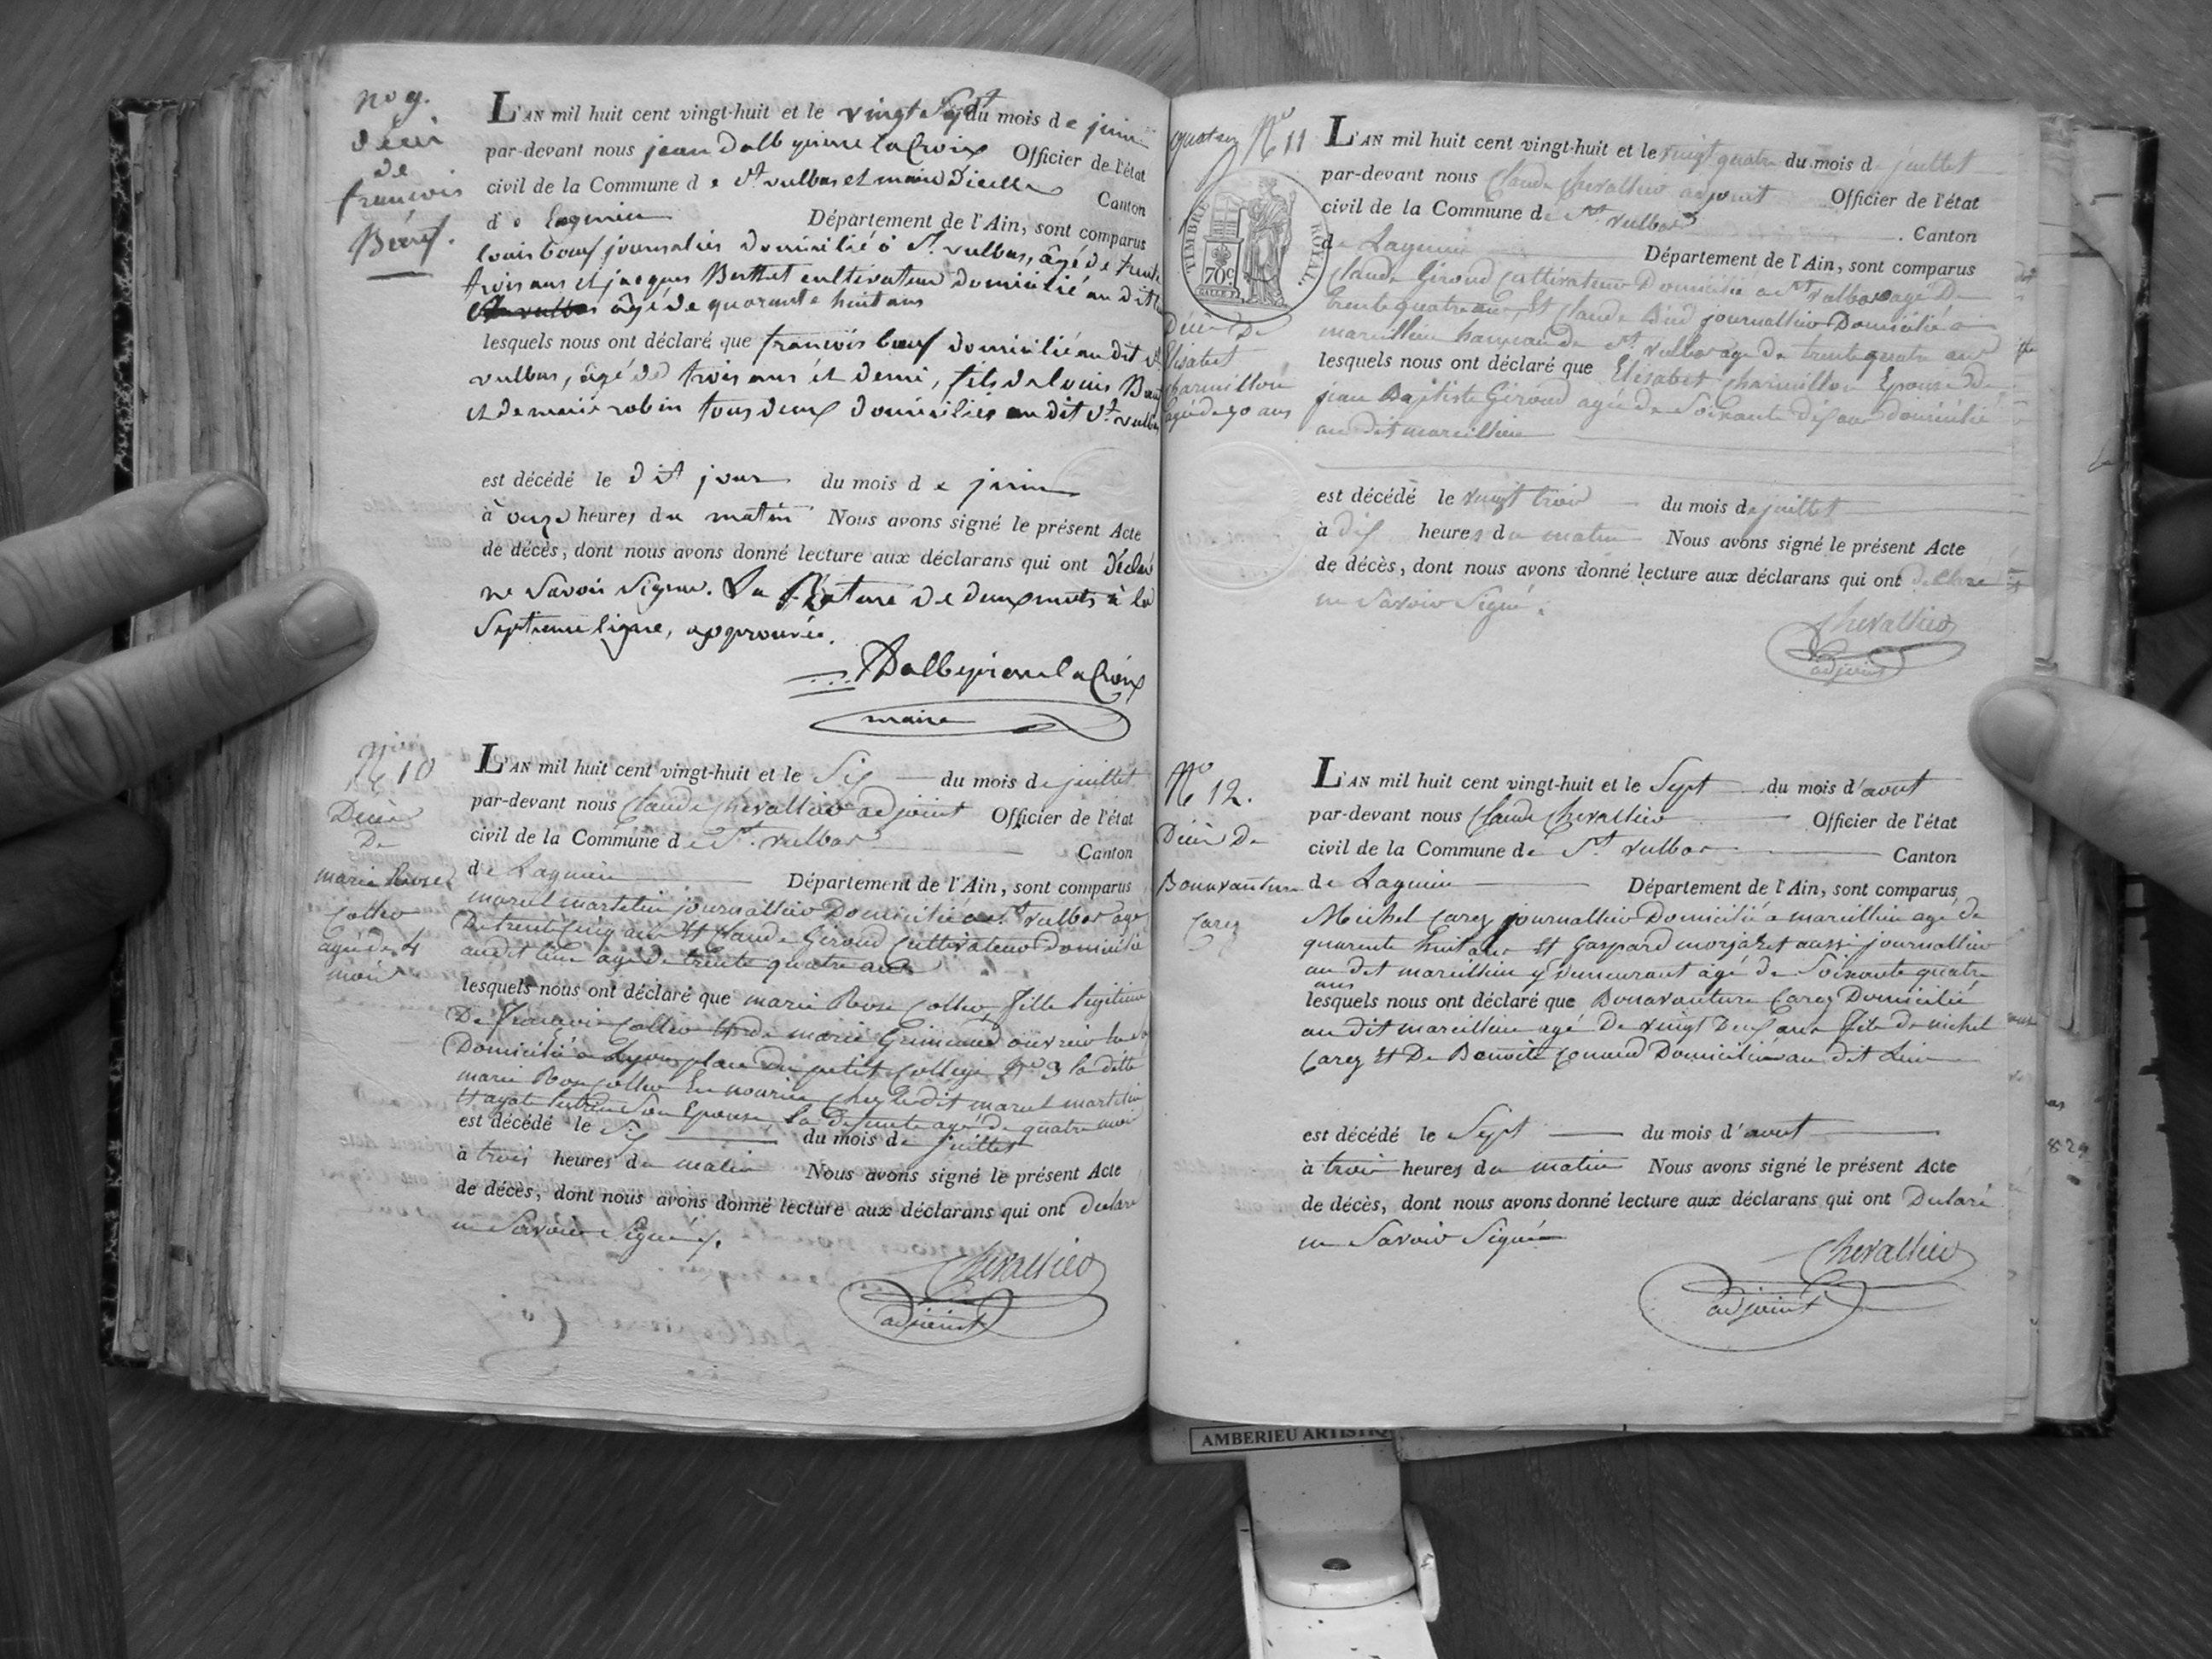 No 9.
décès
de
francois
Bœuf.
L'AN mil huit cent vingt-huit et le vingt Sept du mois de juin
par-devant nous jean Dalbepierre la Croix Officier de l'état
civil de la Commune de St vulbas et maire d'icelle Canton
de Lagnieu Département de l'Ain, sont comparus
louis bœuf journalier domicilié à St vulbas, âgé de trente
trois ans et jacques Berthet cultivateur domicilié au dit
âgé de quarante huit ans
lesquels nous ont déclaré que francois bœuf domicilié au dit St
vulbas, âgé de trois ans et demi, fils de louis Bœuf
et de marie robin tous deux domiciliés au dit St vulbas
est décédé le dit jour du mois de juin
à onze heures du matin Nous avons signé le présent Acte
de décès, dont nous avons donné lecture aux déclarans qui ont déclaré
ne Savoir Signer. La Rature de deux mots à la
Septieme ligne, approuvée.
Dalbepierre la Croix
maire
No 10
Décès
De
marie Rose
Colleo
agé de 4
mois
L'AN mil huit cent vingt-huit et le Six du mois de juillet
par-devant nous Claude Chevallier adjoint Officier de l'état
civil de la Commune de St. vulbas Canton
de Lagnieu Département de l'Ain, sont comparus
marcel martelin journallier Domicilié a St vulbas agé
De trente Cinq ans Et Claude Giroud Cultivateur Domicilié
audit lieu agé de trente quatre ans
lesquels nous ont déclaré que marie Rose Colleo, fille legitime
De francois Colleo Et de marie Grimaud
Domicilié a Lyon place du petit College No 3 la ditte
marie Rose Colleo En nourice Chez le dit marcel martelin
Son Epouse, la defunte agé de quatre mois
est décédé le Six du mois de juillet
à trois heures du matin Nous avons signé le présent Acte
de décès, dont nous avons donné lecture aux déclarans qui ont declaré
ne Savoir Signé.
Chevallier
adjoint
No 11
TIMBRE ROYAL.
70c
Décès De
Elisabet
Charmillon
agé de 70 ans
L'AN mil huit cent vingt-huit et le vingt quatre du mois de juillet
par-devant nous Claude Chevallier adjoint Officier de l'état
civil de la Commune de St. vulbas Canton
de Lagnieu Département de l'Ain, sont comparus
Claude Giroud Cultivateur Domicilié a St vulbas agé De
trente quatre ans, Et Claude journallier Domicilié a
marcillieu hameau de St. vulbas agé de trente quatre ans
lesquels nous ont déclaré que Elisabet Charmillon Epouse de
jean Baptiste Giroud agé de Soixante dix ans domicilié
au dit marcillieu
est décédé le vingt trois du mois de juillet
à dix heures du matin Nous avons signé le présent Acte
de décès, dont nous avons donné lecture aux déclarans qui ont
ne Savoir Signé.
Chevallier
adjoint
No 12.
Décès De
Bonavanture
Carez
L'AN mil huit cent vingt-huit et le Sept du mois d'aout
par-devant nous Claude Chevallier Officier de l'état
civil de la Commune de St vulbas Canton
de Lagnieu Département de l'Ain, sont comparus
Michel Carez journallier Domicilié a marcillieu agé de
quarente huit ans Et Gaspard morjaret aussi journallier
au dit marcillieu y demeurant agé de Soixante quatre
ans
lesquels nous ont déclaré que Bonavanture Carez Domicilié
au dit marcillieu agé De vingt Deux ans fils de michel
Carez Et De Benoite Domicilié au dit Lieu
est décédé le Sept du mois d'aout
à trois heures du matin Nous avons signé le présent Acte
de décès, dont nous avons donné lecture aux déclarans qui ont Declaré
ne Savoir Signé
Chevallier
adjoint
829
AMBERIEU ARTISTIQ